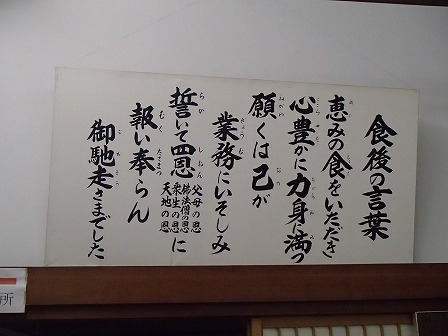 食後の言葉
恵みの食をいただき
心豊かに力身に満つ
願くは己が
業務にいそしみ
誓いて四恩に
父母の恩
佛法僧の恩
衆生の恩
天地の恩
報い奉らん
御馳走さまでした
所